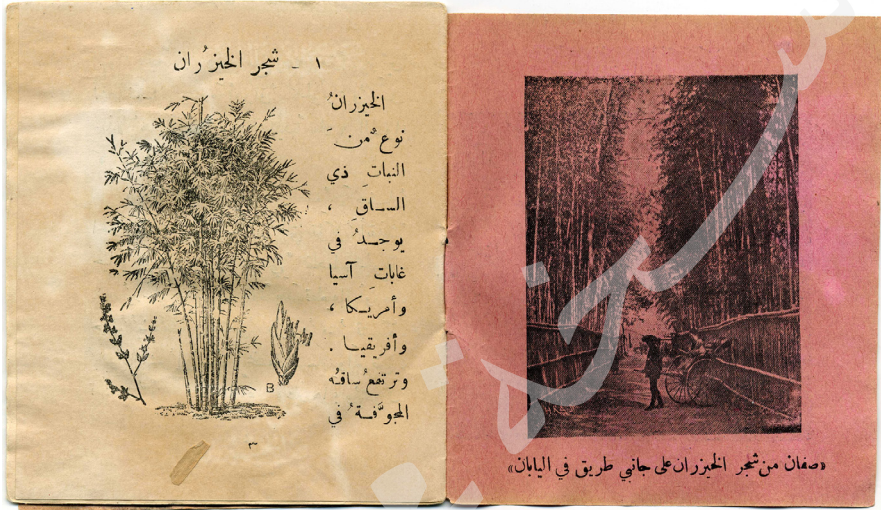 ١ - شجر الخيزُران
الخيزرانُ
نوعٌ منَ
النباتِ ذي
الساقِ ،
يوجدُ في
غاباتِ آسيا
وأمريكا ،
وأفريقيا .
وترتفعُ ساقُه
المجوَّفةُ في
B
٣
«صفان من شجر الخيزران على جانبي طريق في اليابان»